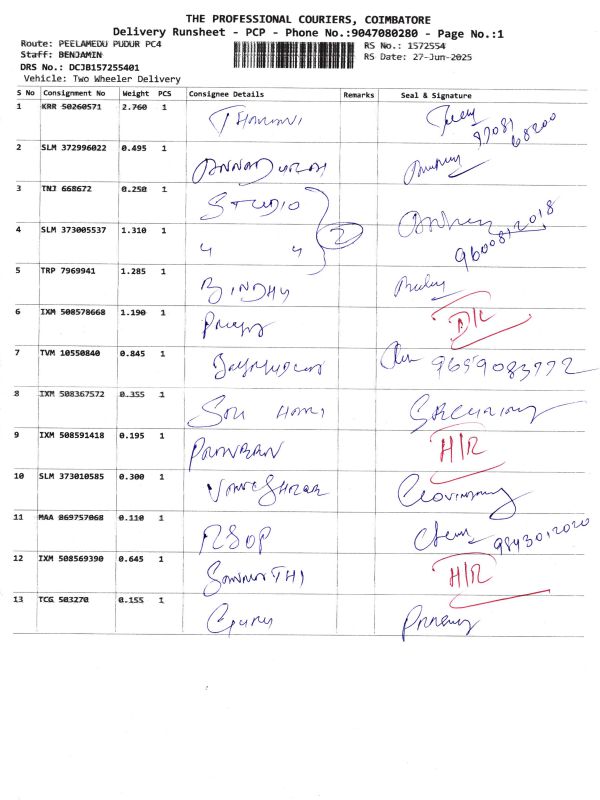 THE PROFESSIONAL COURIERS, COIMBATORE
Delivery Runsheet - PCP - Phone No.:9047080280 - Page No.:1
Route: PEELAMEDU PUDUR PC4
RS No.: 1572554
Staff: BENJAMIN
RS Date: 27-Jun-2025
DRS No.: DCJB157255401
Vehicle: Two Wheeler Delivery
S No Consignment No Weight PCS Consignee Details Remarks Seal & Signature
1 KRR 50260571 2.760 1 THARANI 97081 68200
2 SLM 372996022 0.495 1 ANNADURAI
3 TNJ 668672 0.250 1 STUDIO
4 SLM 373005537 1.310 1 " " 2 9600812018
5 TRP 7969941 1.285 1 BINDHU
6 IXM 508578668 1.190 1 D/R
7 TVM 10550840 0.845 1 9659083772
8 IXM 508367572 0.355 1 SRI HARI
9 IXM 508591418 0.195 1 H/R
10 SLM 373010585 0.300 1
11 MAA 869757068 0.110 1 RSOP 9843012020
12 IXM 508569390 0.645 1 H/R
13 TCG 503270 0.155 1 Guru